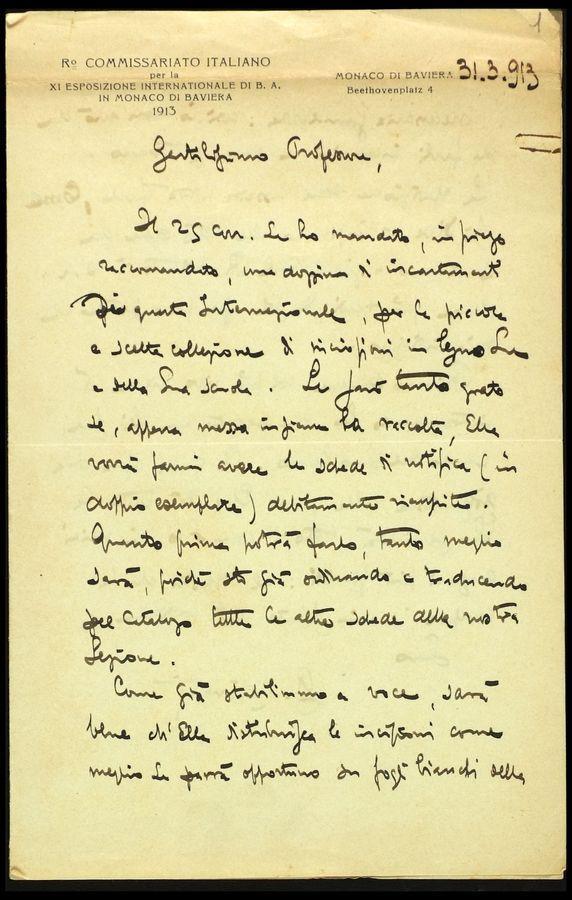 1
Rº COMMISSARIATO ITALIANO
per la
XI ESPOSIZIONE INTERNATIONALE DI B. A.
IN MONACO DI BAVIERA
1913
MONACO DI BAVIERA 31.3.913
Beethovenplatz 4
Gentilissimo Professore,
Il 25 corr. Le ho mandato, in piego
raccomandato, una doppina di incartamenti
per questa Internazionale, per la piccola
e scelta collezione di incisioni in legno Sue
e della Sua scuola. Le sarò tanto grato
se, appena messa insieme la raccolta, Ella
vorrà farmi avere le schede di notifica (in
doppio esemplare) debitamente riempite.
Quanto prima potrà farlo, tanto meglio
sarà, poiché sto già ordinando e traducendo
pel Catalogo tutte le altre schede della nostra
Sezione.
Come già stabilimmo a voce, sarà
bene ch'Ella distribuisca le incisioni come
meglio Le parrà opportuno su fogli bianchi della